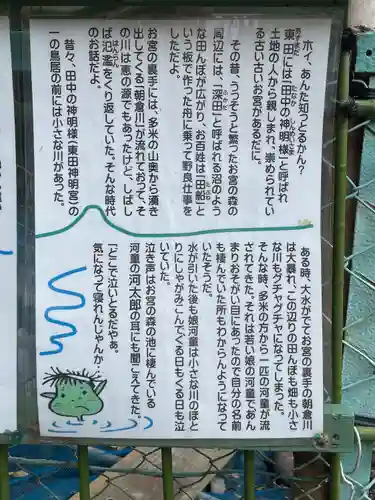 ホイ、あんた知っとるかん？
東田には「田中の神明様」と呼ばれ
土地の人から親しまれ、崇められてい
る古い古いお宮があるだに。
その昔、うっそうと繁ったお宮の森の
周辺には、「深田」と呼ばれる沼のよう
な田んぼが広がり、お百姓は「田船」と
いう板で作った舟に乗って野良仕事を
したとよ。
お宮の裏手には、多米の山奥から湧き
出してくる「朝倉川」が流れておって、そ
の川は恵の源でもあったけど、しばし
ば氾濫をくり返していた。そんな時代
のお話だよ。
昔々、田中の神明様（東田神明宮）の
一の鳥居の前には小さな川があった。
ある時、大水がでてお宮の裏手の朝倉川
は大暴れ、この辺りの田んぼも畑も小さ
な川もグチャグチャになってしまった。
そんな時、多米の方から一匹の河童が流
されてきた。それは若い娘の河童であん
まりおそがい目にあったので自分の名前
も棲んでいた所もわからんようになって
いたそうだ。
水が引いた後も娘河童は小さな川のほと
りにしゃがみこんでくる日もくる日も泣
いていた。
泣き声はお宮の森の池に棲んでいる
河童の河太郎の耳にも聞こえてきた。
「どこで泣いとるだやぁ。
気になって寝れんじゃんか…